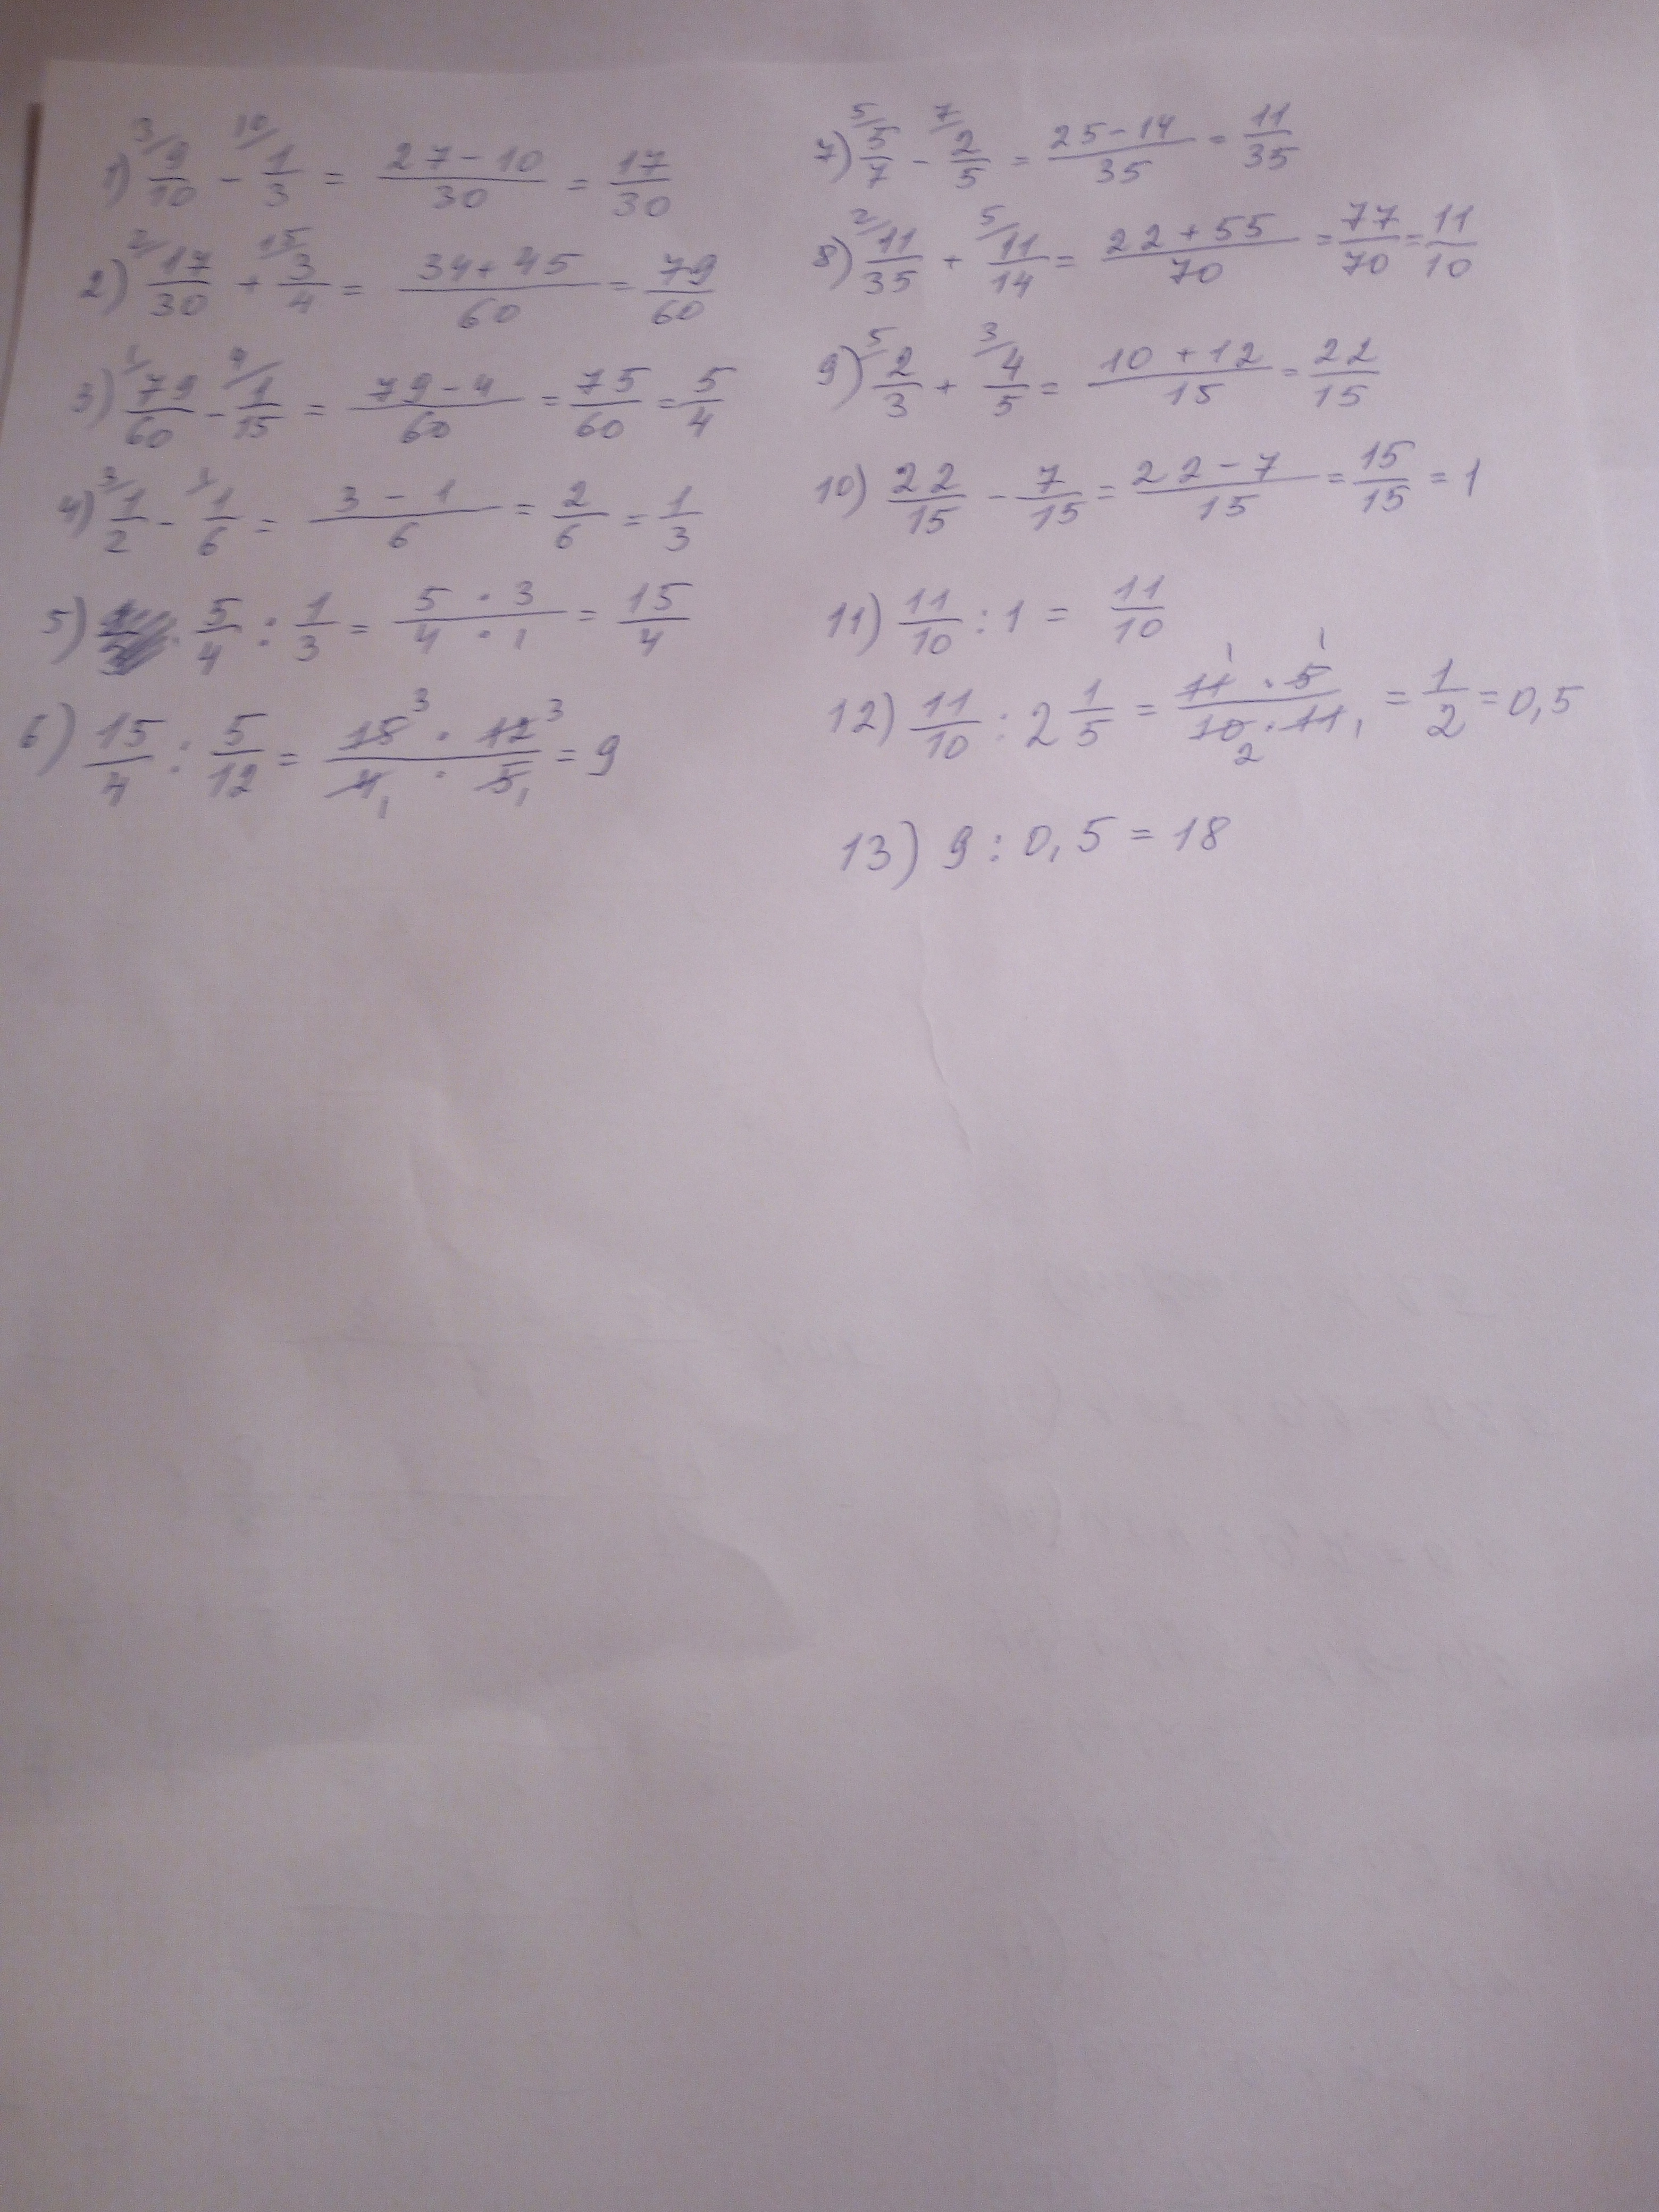 1) 3/ 9/10 - 10/ 1/3 = (27-10)/30 = 17/30
2) 2/ 17/30 + 15/ 3/4 = (34+45)/60 = 79/60
3) 1/ 79/60 - 4/ 1/15 = (79-4)/60 = 75/60 = 5/4
4) 3/ 1/2 - 1/ 1/6 = (3-1)/6 = 2/6 = 1/3
5) 5/4 : 1/3 = (5·3)/(4·1) = 15/4
6) 15/4 : 5/12 = (15 3 · 12 3)/(4 1 · 5 1) = 9
7) 5/ 5/7 - 7/ 2/5 = (25-14)/35 = 11/35
8) 2/ 11/35 + 5/ 11/14 = (22+55)/70 = 77/70 = 11/10
9) 5/ 2/3 + 3/ 4/5 = (10+12)/15 = 22/15
10) 22/15 - 7/15 = (22-7)/15 = 15/15 = 1
11) 11/10 : 1 = 11/10
12) 11/10 : 2 1/5 = (11 1 · 5 1)/(10 2 · 11 1) = 1/2 = 0,5
13) 9 : 0,5 = 18